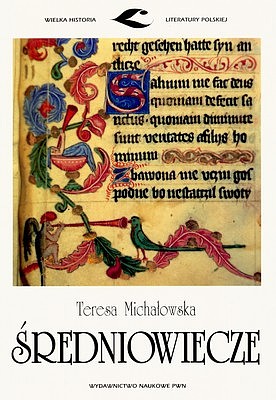 WIELKA HISTORIA LITERATURY POLSKIEJ
recht gesehen hatte syn an
tlicze
Saluum me fac deus
quoniam defecit sa
nctus · quoniam diminute
sunt veritates a filijs ho
minum
Zbawona mie vczin gos
podne bo nestatczil swoty
Teresa Michałowska
ŚREDNIOWIECZE
WYDAWNICTWO NAUKOWE PWN